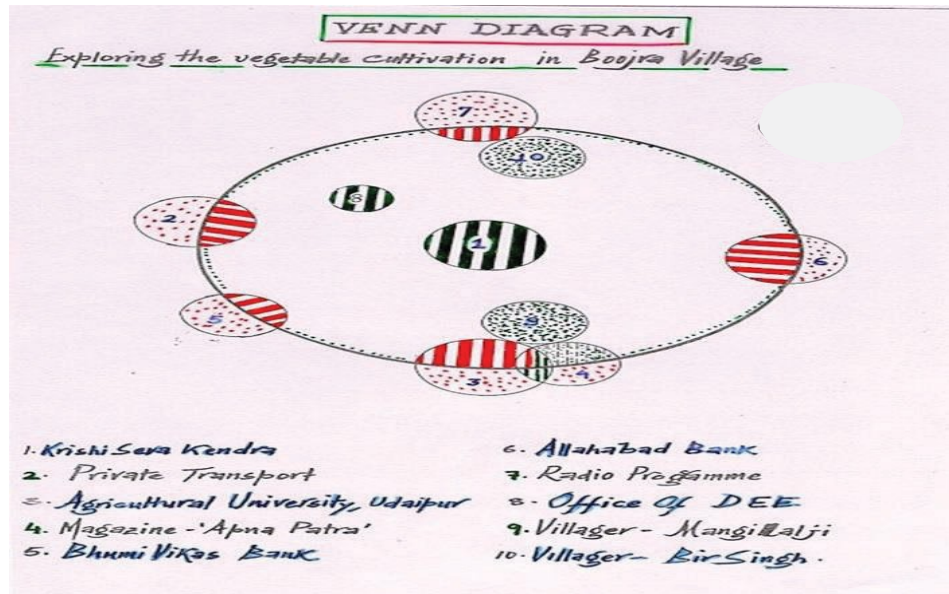 VENN DIAGRAM
Exploring the vegetable cultivation in Boojra Village
7
10
8
2
1
6
5
9
3
4
1. Krishi Seva Kendra
2. Private Transport
3. Agricultural University, Udaipur
4. Magazine - 'Apna Patra'
5. Bhumi Vikas Bank
6. Allahabad Bank
7. Radio Programme
8. Office Of DEE
9. Villager - Mangilalji
10. Villager - Bir Singh.